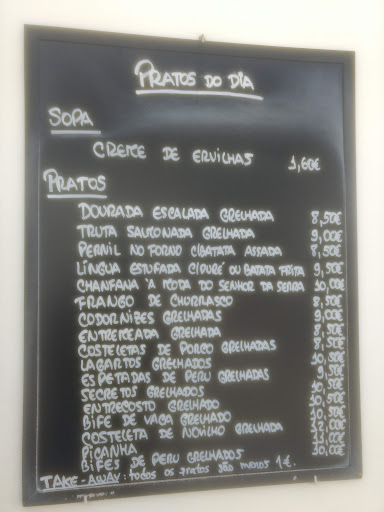 PRATOS DO DIA
SOPA
CREME DE ERVILHAS 1,60€
PRATOS
DOURADA ESCALADA GRELHADA 8,50€
TRUTA SALMONADA GRELHADA 9,00€
PERNIL NO FORNO C/BATATA ASSADA 8,50€
LÍNGUA ESTUFADA C/PURÉ OU BATATA FRITA 9,50€
CHANFANA À MODA DO SENHOR DA SERRA 10,00€
FRANGO DE CHURRASCO 8,50€
CODORNIZES GRELHADAS 9,00€
ENTREMEADA GRELHADA 8,50€
COSTELETAS DE PORCO GRELHADAS 8,50€
LAGARTOS GRELHADOS 10,50€
ESPETADAS DE PERU GRELHADAS 9,50€
SECRETOS GRELHADOS 10,50€
ENTRECOSTO GRELHADO 10,50€
BIFE DE VACA GRELHADO 10,50€
COSTELETA DE NOVILHO GRELHADA 12,00€
PICANHA 13,00€
BIFES DE PERU GRELHADOS 10,00€
TAKE-AWAY: todos os pratos são menos 1€.